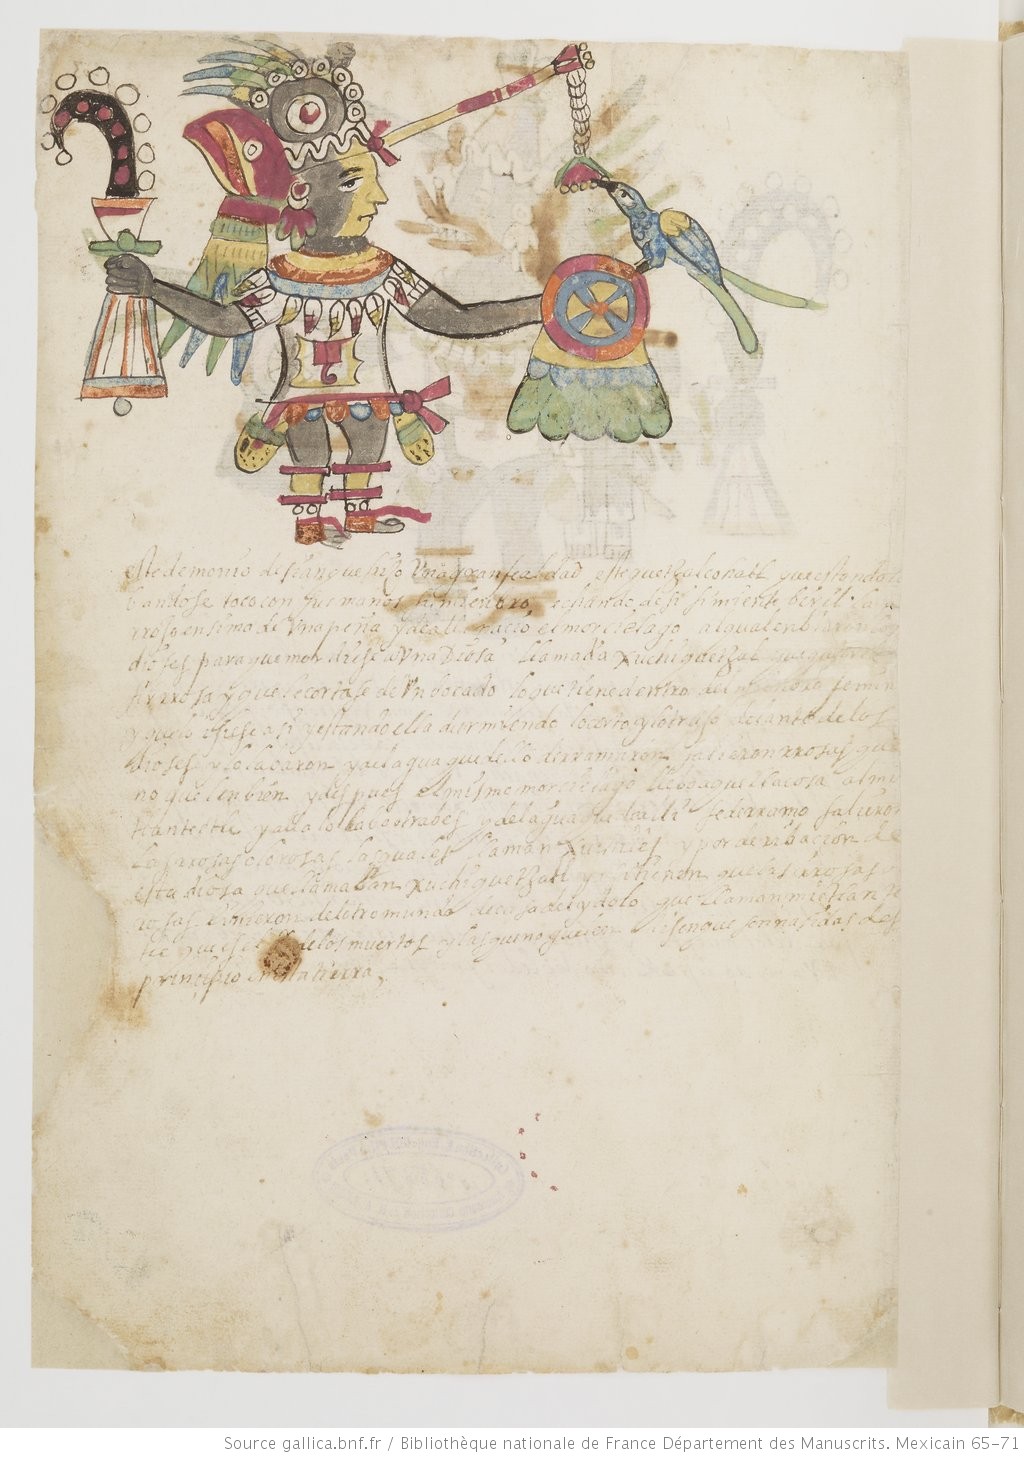 este demonio disen que hizo una gran fealdad este quetzalcoatl que estando la
bandose tocando con sus manos el miembro echando de si simiente
rrojo ensima de una peña y de alli nacio el morcielago al qual enbiaron los
dioses para que mordiese a una diosa llamada xuchiquetzal
que le cortase de un bocado lo que tiene dentro del miembro femin
y que lo y estando ella durmiendo lo corto y lo traxo delante de los
dioses y lo labaron y del agua que dello derramaron salieron rrosas que
no guelen bien y despues el mismo morcielago llebo aquella rosa al mi
tlantectli y alla lo labo otra bes y del agua que de alli se derramo salieron
las rrosas olorosas las quales llaman xuchiles y por deribacion de
esta diosa que llaman xuchiquetzal y que las rrosas
rosas binieron del otro mundo de casa del ydolo que llaman mictlan te
de los muertos y las que no guelen disen que son nasidas des
principio en esta tierra,
Source gallica.bnf.fr / Bibliothèque nationale de France Département des Manuscrits. Mexicain 65-71